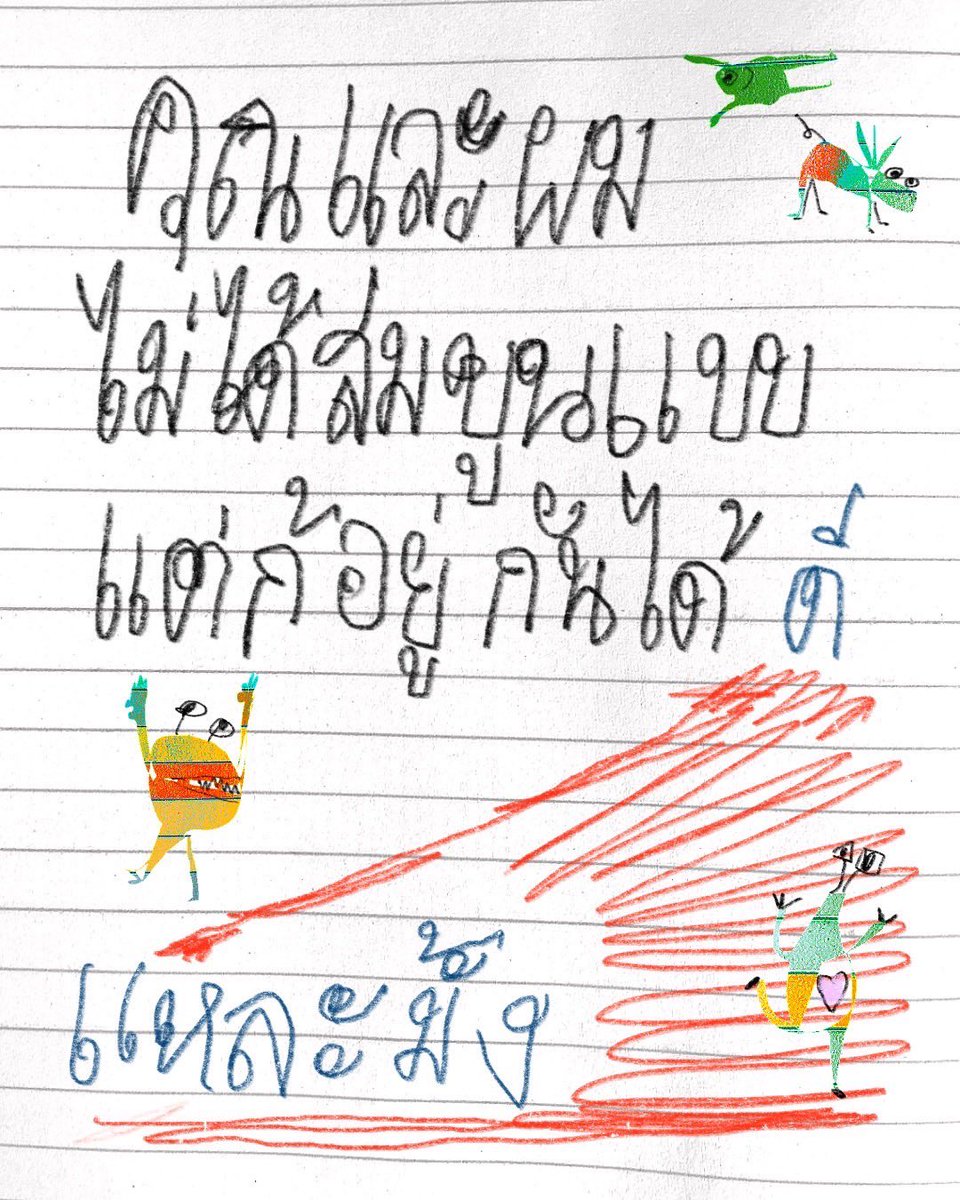 คุณและผม
ไม่ได้สมบูนแบบ
แต่ก้อยู่กันได้ ดี
แหละมั้ง